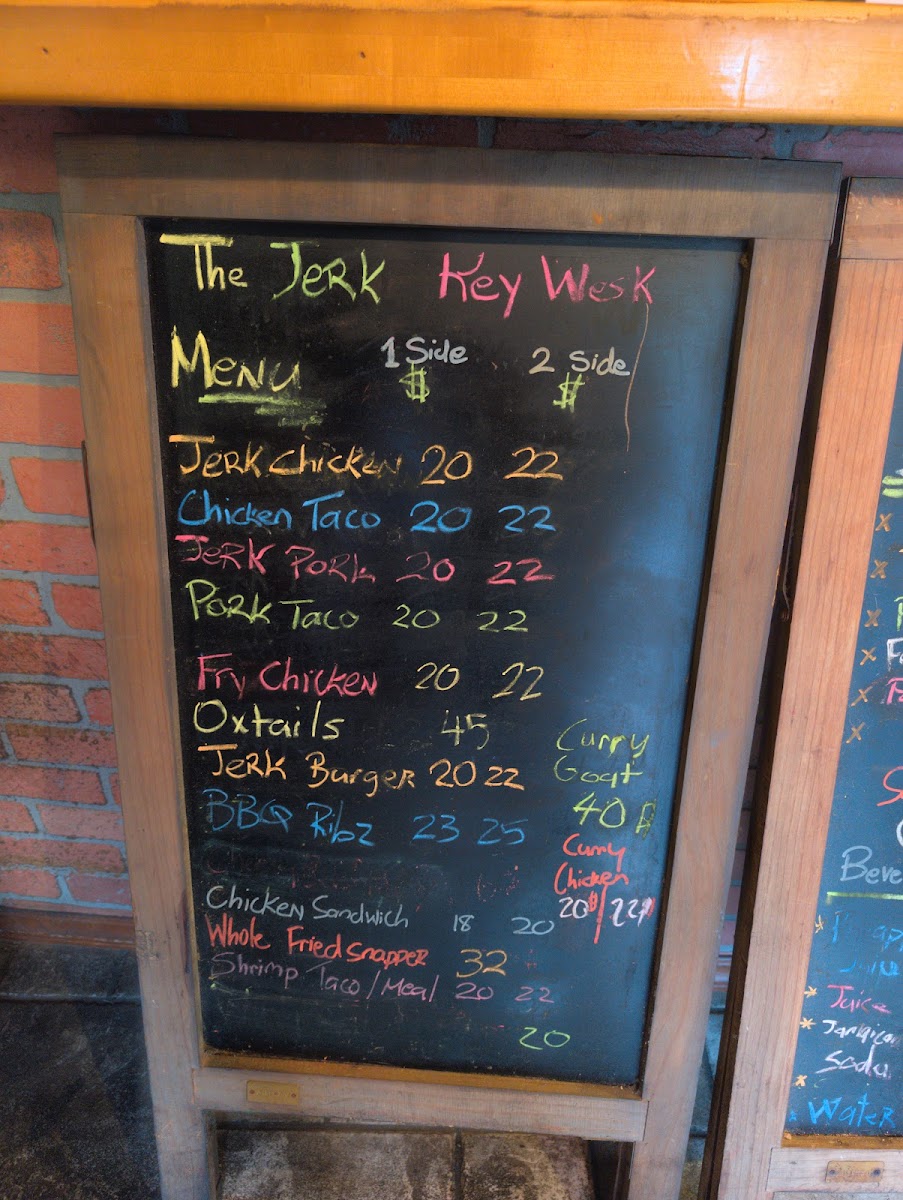 The Jerk Key Wesk
Menu 1 Side 2 Side
$ $
Jerk Chicken 20 22
Chicken Taco 20 22
Jerk Pork 20 22
Pork Taco 20 22
Fry Chicken 20 22
Oxtails 45
Jerk Burger 20 22
BBQ Ribz 23 25
Chicken Sandwich 18 20
Whole Fried snapper 32
Shrimp Taco/Meal 20 22
20
Curry
Goat
40
Curry
Chicken
20$/22$
Juice
Soda
Water